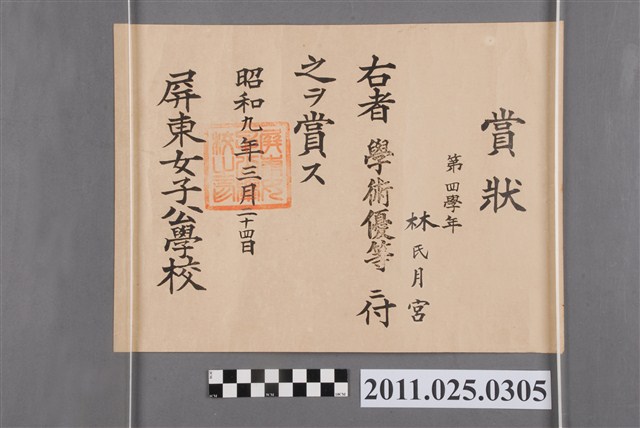 賞狀
第四學年
林氏月宮
右者學術優等ニ付
之ヲ賞ス
昭和九年三月二十四日
屏東女子公學校
2011.025.0305